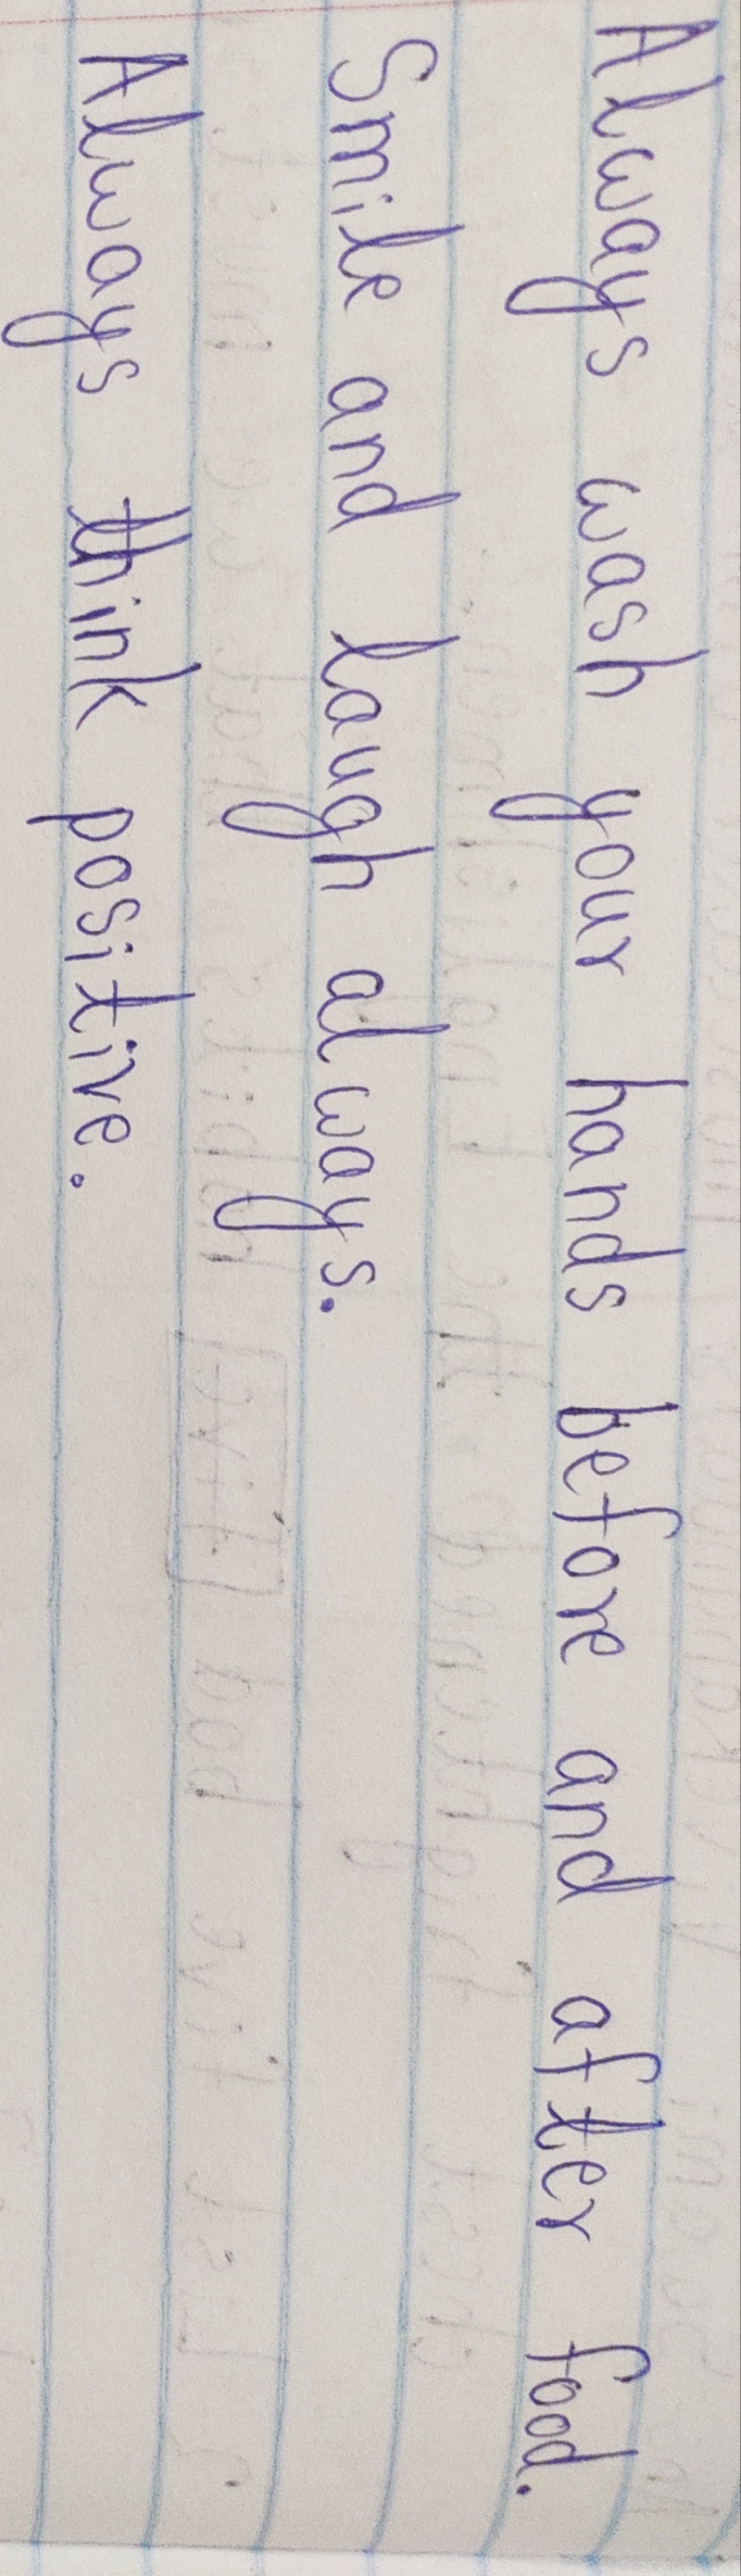 Always wash your hands before and after food.
Smile and laugh always.
Always think positive.